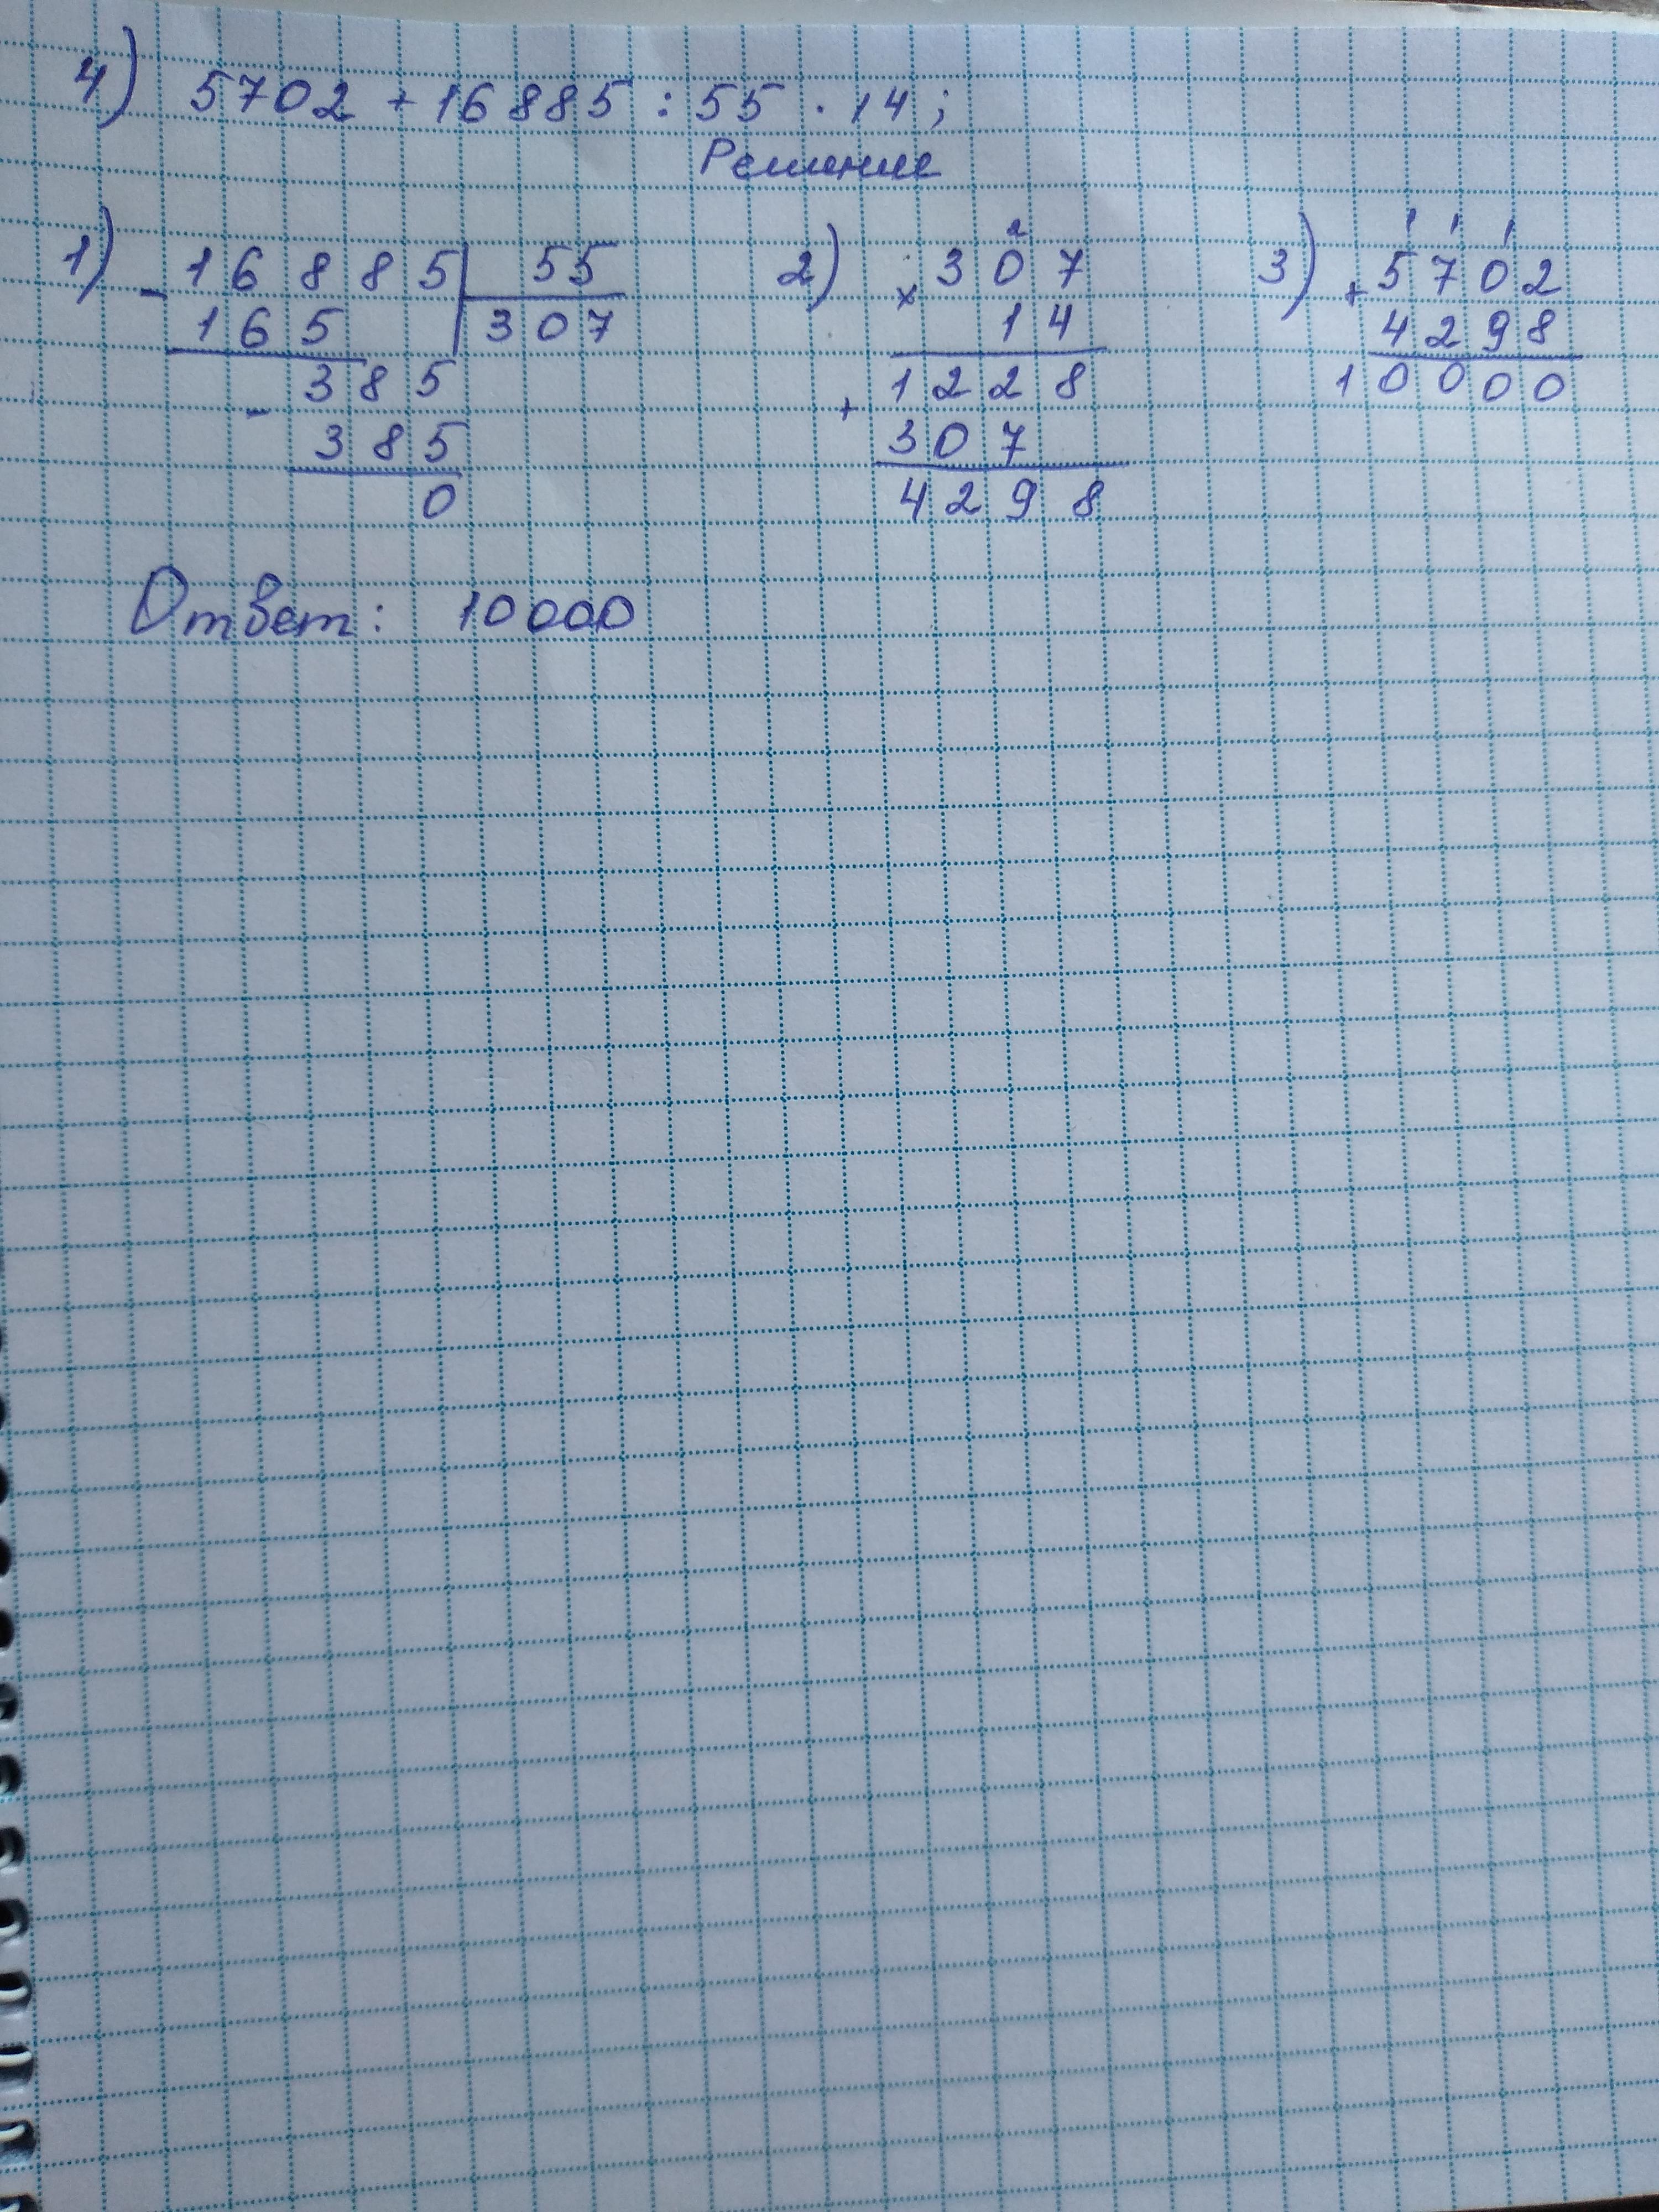 4) 5702 + 16885 : 55 · 14;
Решение
1) - 16885 | 55
165 | 307
- 385
385
0
2) 2
× 307
14
+ 1228
307
4298
3) 1 1 1
+ 5702
4298
10000
Ответ: 10000